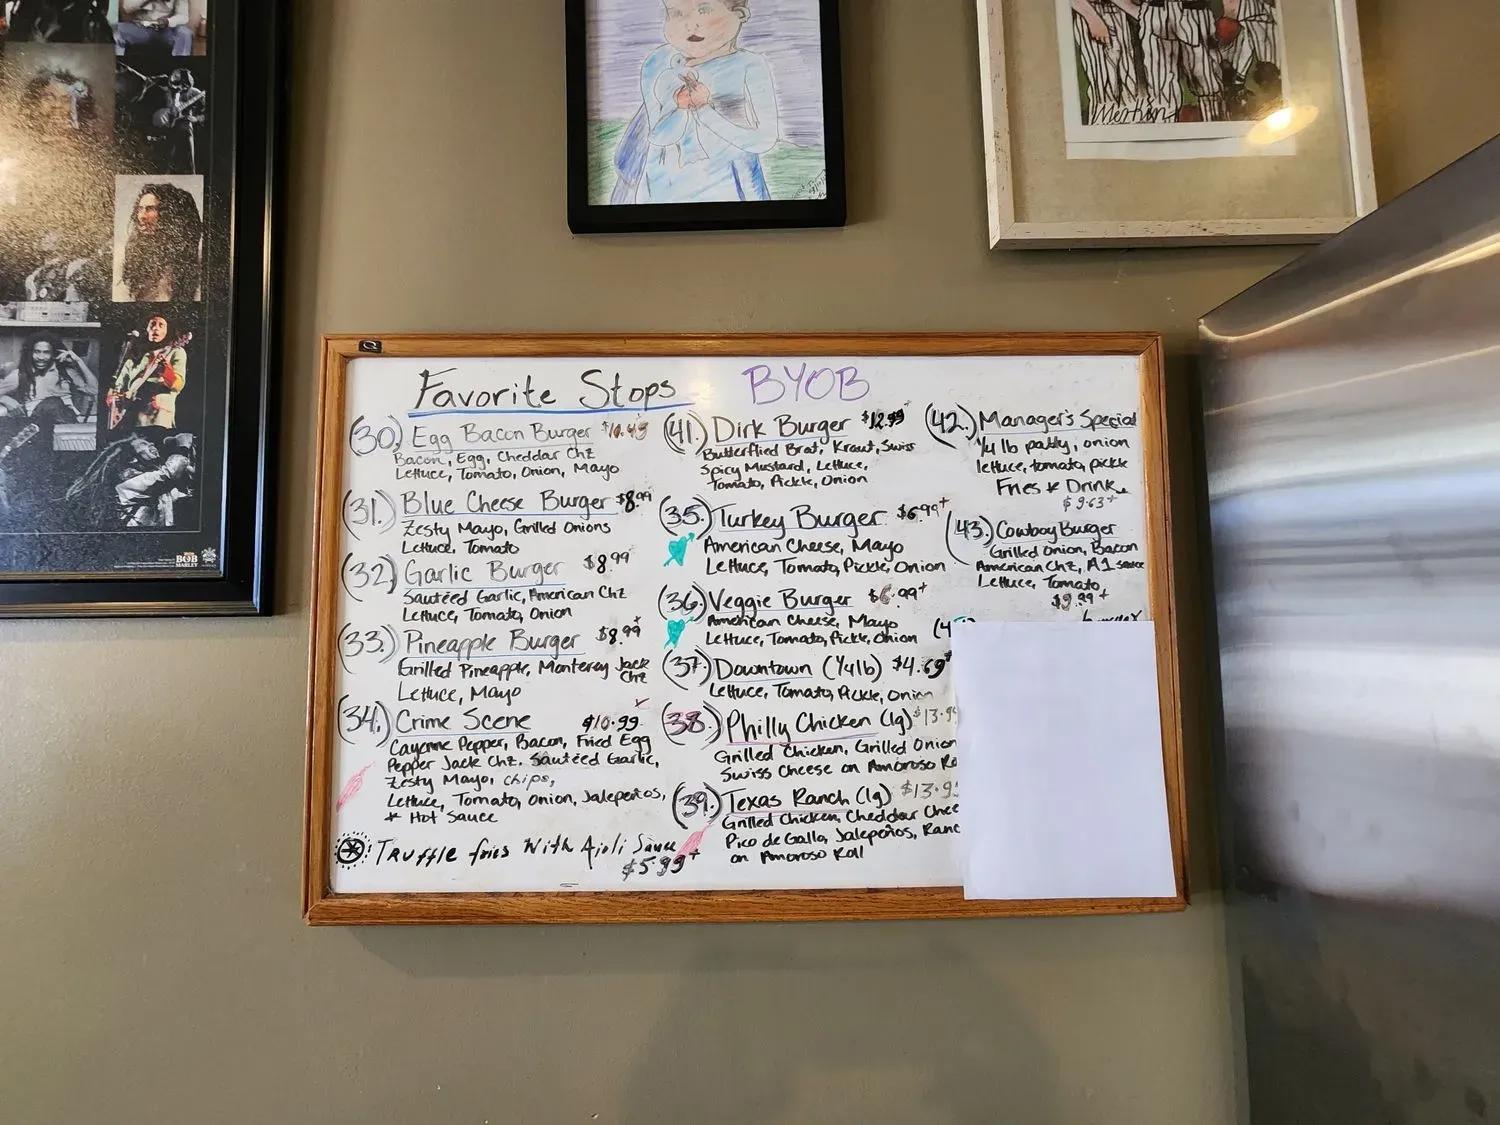 Favorite Stops
BYOB
(30.) Egg Bacon Burger $10.49
Bacon, Egg, Cheddar Chz
Lettuce, Tomato, Onion, Mayo
(31.) Blue Cheese Burger $8.99
Zesty Mayo, Grilled Onions
Lettuce, Tomato
(32.) Garlic Burger $8.99
Sautéed Garlic, American Chz
Lettuce, Tomato, Onion
(33.) Pineapple Burger $8.99+
Grilled Pineapple, Monterey Jack
Chz
Lettuce, Mayo
(34.) Crime Scene $10.99
Cayenne Pepper, Bacon, Fried Egg
Pepper Jack Chz. Sautéed Garlic,
Zesty Mayo, chips,
Lettuce, Tomato, Onion, Jalepeños,
* Hot Sauce
Truffle fries With Aioli Sauce
$5.99+
(41.) Dirk Burger $12.99+
Butterflied Brat, Kraut, Swiss
Spicy Mustard, Lettuce,
Tomato, Pickle, Onion
(35.) Turkey Burger $6.99+
American Cheese, Mayo
Lettuce, Tomato, Pickle, Onion
(36.) Veggie Burger $6.99+
American Cheese, Mayo
Lettuce, Tomato, Pickle, Onion
(37.) Downtown (1/4lb) $4.69+
Lettuce, Tomato, Pickle, Onion
(38.) Philly Chicken (lg) $13.9
Grilled Chicken, Grilled Onion
Swiss Cheese on Amoroso Ro
(39.) Texas Ranch (lg) $13.9
Grilled Chicken, Cheddar Chee
Pico de Gallo, Jalepeños, Ranc
on Amoroso Roll
(42.) Manager's Special
1/4 lb patty, onion
lettuce, tomato, pickle
Fries & Drink
$9.63+
(43.) Cowboy Burger
Grilled Onion, Bacon
American Chz, A1 sauce
Lettuce, Tomato
$9.99+
(4
BOB
MARLEY